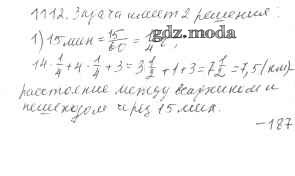 1112. Задача имеет 2 решения:
gdz.moda
1) 15 мин = 15/60 = 1/4 ч,
14 · 1/4 + 4 · 1/4 + 3 = 3 1/2 + 1 + 3 = 7 1/2 = 7,5 (км) –
расстояние между всадником и
пешеходом через 15 мин.
– 187